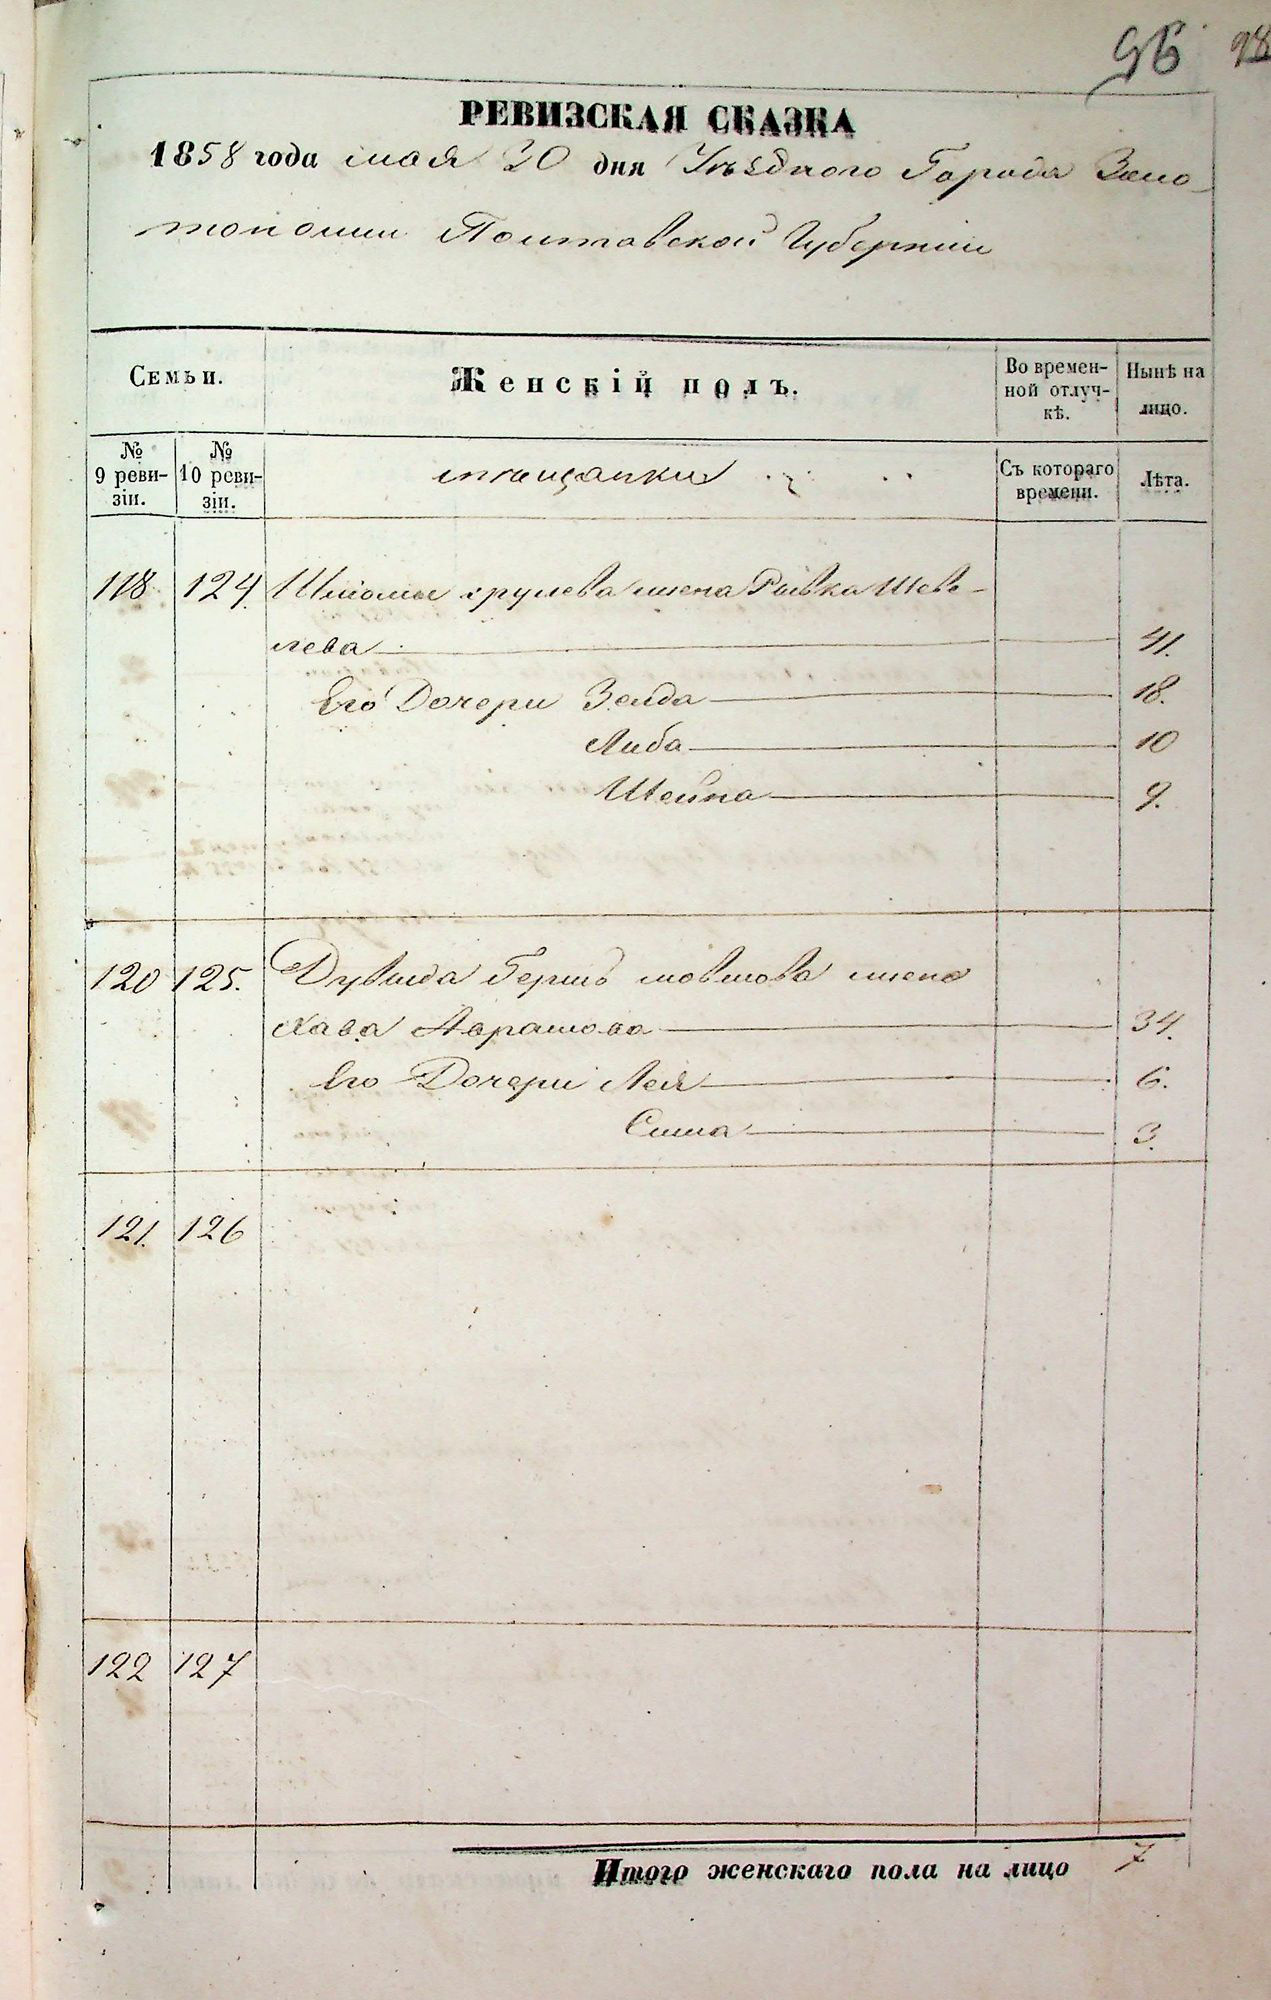 96 98
РЕВИЗСКАЯ СКАЗКА
1858 года мая 20 дня Уѣзднаго Города Золо-
тоноши Полтавской Губерніи
Семьи.
Женскій полъ.
Во времен-
ной отлуч-
кѣ.
Нынѣ на
лицо.
№
9 реви-
зіи.
№
10 реви-
зіи.
мѣщанки
Съ котораго
времени.
Лѣта.
118 124. Шліомы жена Рывка Шеве-
лева 41.
Его Дочери Зелда 18.
Либа 10
Шейна 9.
120 125. Дувида Бершъ Мовшова жена
Хава Аврамова 34.
Его Дочери Лея 6.
Сима 3.
121. 126
122 127
Итого женскаго пола на лицо 7